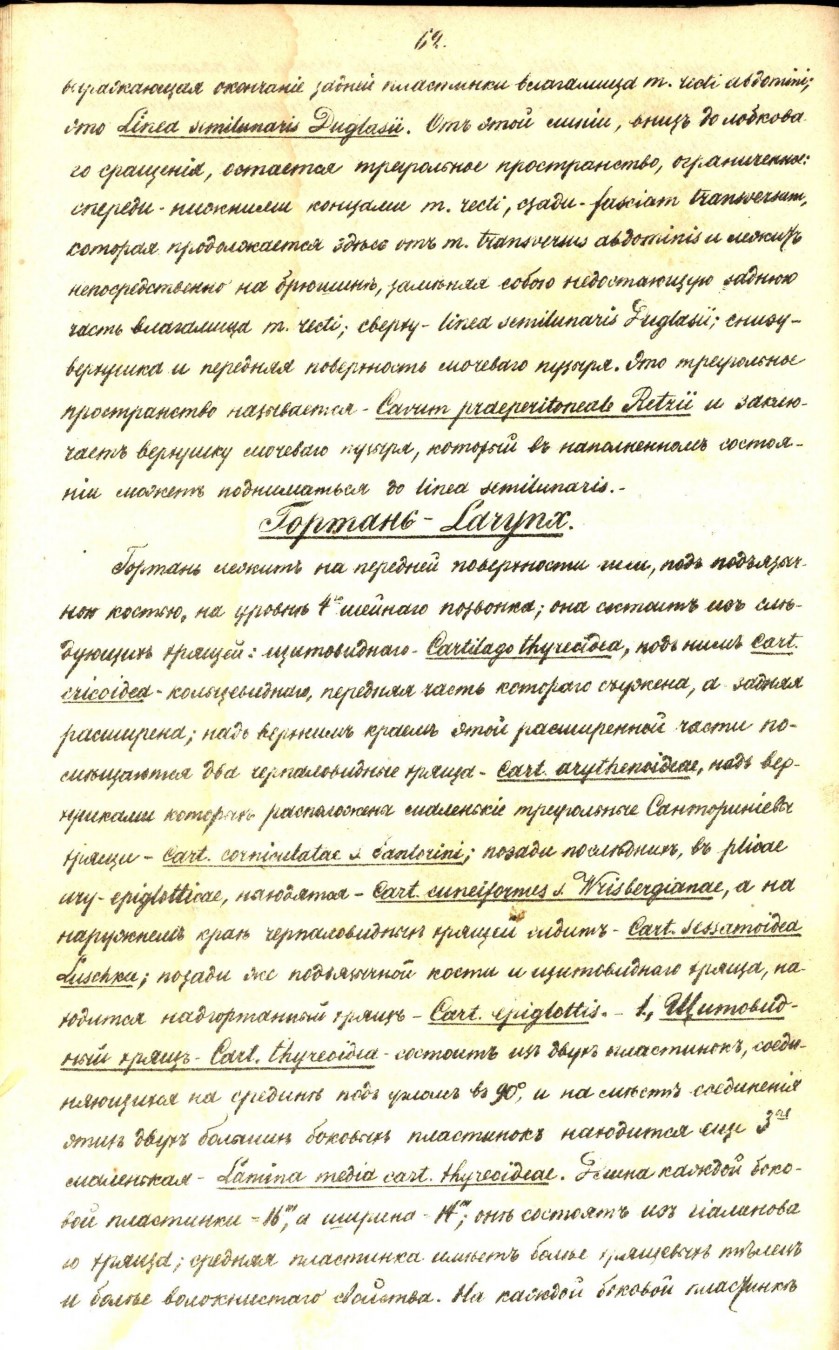 62.
выражающая окончаніе задней пластинки влагалища m. recti abdomini;
это Linea semilunaris Duglasii. Отъ этой линіи, внизъ до лобкова-
го сращенія, остается треугольное пространство, ограниченное:
спереди - нижними концами m. recti, сзади - fasciam transversam,
которая продолжается здѣсь отъ m. transversus abdominis и лежитъ
непосредственно на брюшинѣ, замѣняя собою недостающую заднюю
часть влагалища m. recti; сверху - linea semilunaris Duglasii; снизу -
верхушка и передняя поверхность мочеваго пузыря. Это треугольное
пространство называется - Cavum praeperitoneale Retzii и заклю-
чаетъ верхушку мочеваго пузыря, который въ наполненномъ состоя-
ніи можетъ подниматься до linea semilunaris. -
Гортань - Larynx.
Гортань лежитъ на передней поверхности шеи, подъ подъязыч-
ною костью, на уровнѣ 4го шейнаго позвонка; она состоитъ изъ слѣ-
дующихъ хрящей: щитовиднаго - Cartilago thyreoidea, подъ нимъ Cart.
cricoidea - кольцевиднаго, передняя часть котораго съужена, а задняя
расширена; надъ верхнимъ краемъ этой расширенной части по-
мѣщаются два черпаловидные хряща - Cart. arythenoideae, надъ вер-
хушками которыхъ расположены маленькіе треугольные Санториніевы
хрящи - Cart. corniculatae s. Santorini; позади послѣднихъ, въ plicae
ary-epiglotticae, находятся - Cart. cuneiformes s. Wrisbergianae, а на
наружнемъ краѣ черпаловидныхъ хрящей сидитъ - Cart. sessamoidea
Luschka; позади же подъязычной кости и щитовиднаго хряща, на-
ходится надгортанный хрящъ - Cart. epiglottis. - 1, Щитовид-
ный хрящъ - Cart. thyreoidea - состоитъ изъ двухъ пластинокъ, соеди-
няющихся на срединѣ подъ угломъ въ 90°, и на мѣстѣ соединенія
этихъ двухъ большихъ боковыхъ пластинокъ находится еще 3ая
маленькая - Lamina media cart. thyreoideae. Длина каждой боко-
вой пластинки - 16''', а ширина - 14'''; онѣ состоятъ изъ гіалинова
го хряща; средняя пластинка имѣетъ болѣе хрящевыхъ тѣлецъ
и болѣе волокнистаго свойства. На каждой боковой пластинкѣ